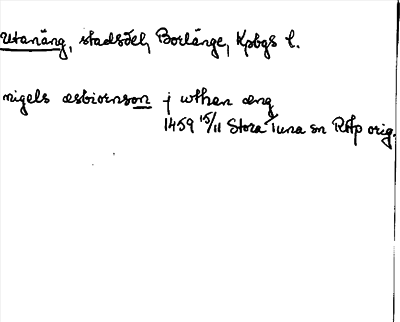 Utanäng, stadsdel, Borlänge, Kpbgs l.
nigels æsbiornson j wthen æng
1459 15/11 Stora Tuna sn RAp orig.